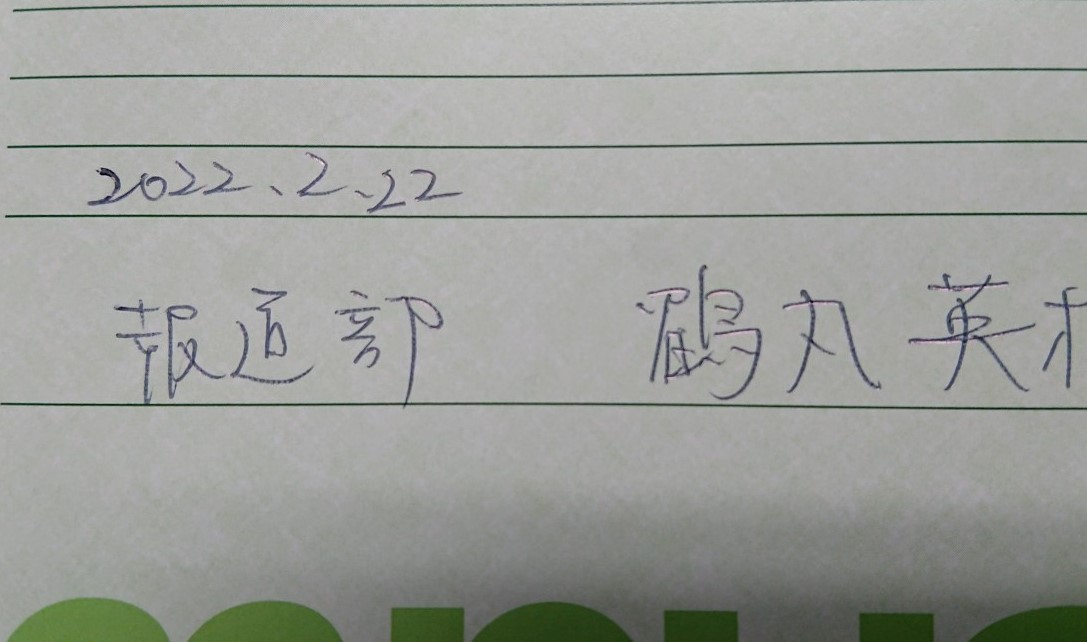 2022、2、22
報道部 鶴丸英